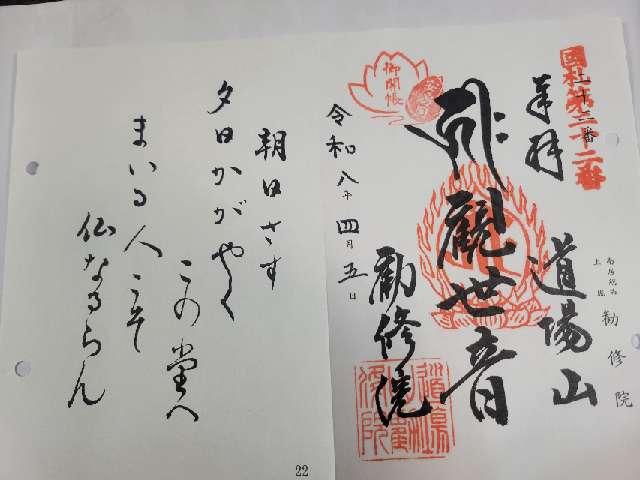 國札第二十二番
二十三番
奉拝
道場山
勧修院
觀世音
勧修院
御開帳
令和八年四月五日
朝日さす
夕日かがやく
この堂へ
まいる人こそ
仏なるらん
22